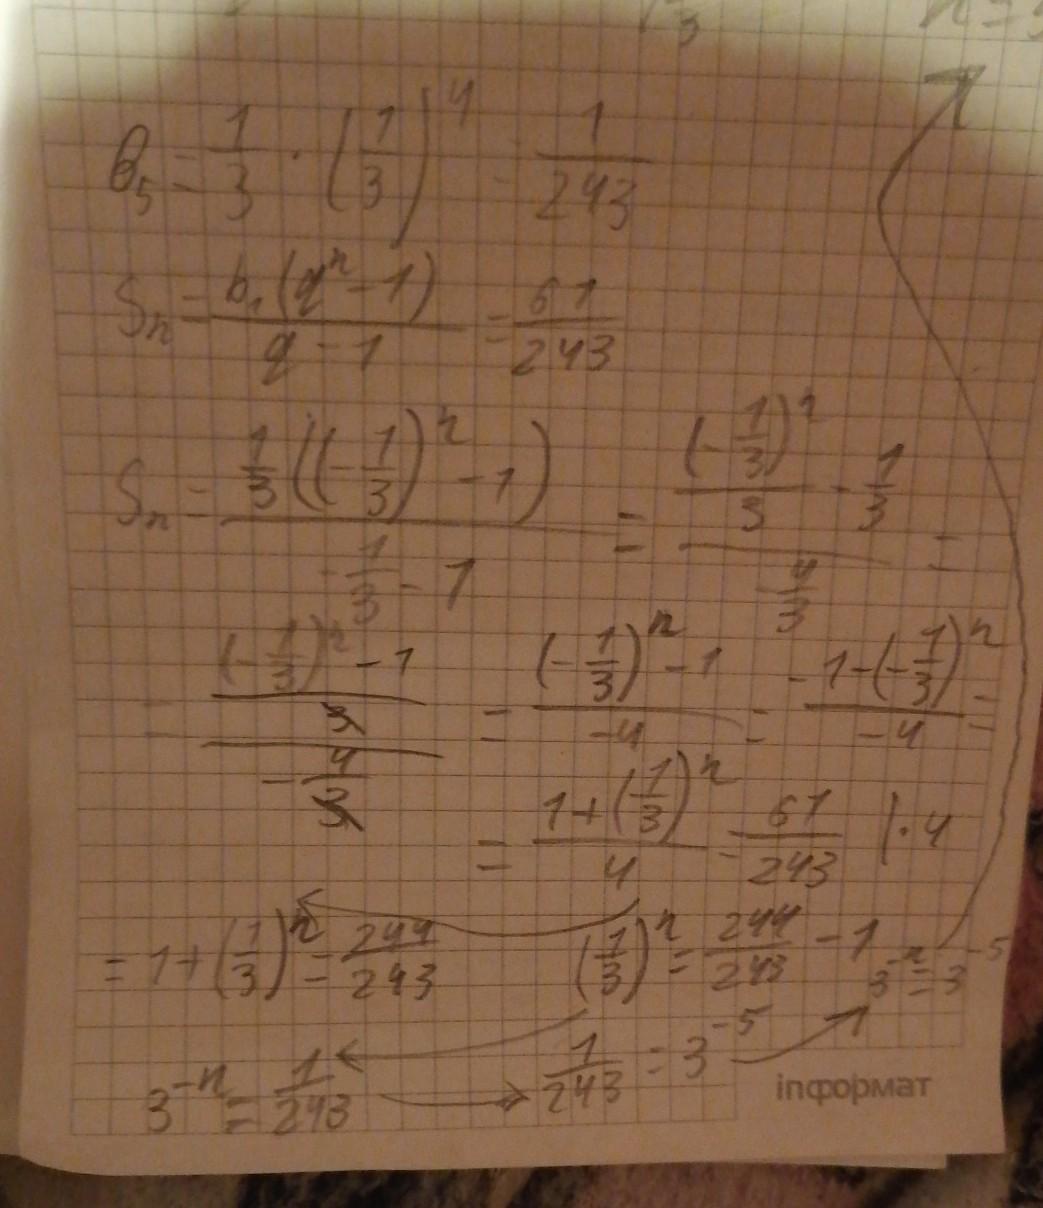 b₅ = 1/3 · (1/3)^4 = 1/243
Sₙ = b₁(qⁿ - 1)/(q - 1) = 61/243
Sₙ = (1/3((-1/3)ⁿ - 1))/(-1/3 - 1) = ((-1/3)ⁿ/3 - 1/3)/(-4/3) =
= (((-1/3)ⁿ - 1)/3)/(-4/3) = ((-1/3)ⁿ - 1)/(-4) = -(1 - (-1/3)ⁿ)/(-4) =
= (1 + (1/3)ⁿ)/4 = 61/243 | · 4
= 1 + (1/3)ⁿ = 244/243 (1/3)ⁿ = 244/243 - 1 3^-n = 3^-5
3^-n = 1/243 1/243 = 3^-5
inформат